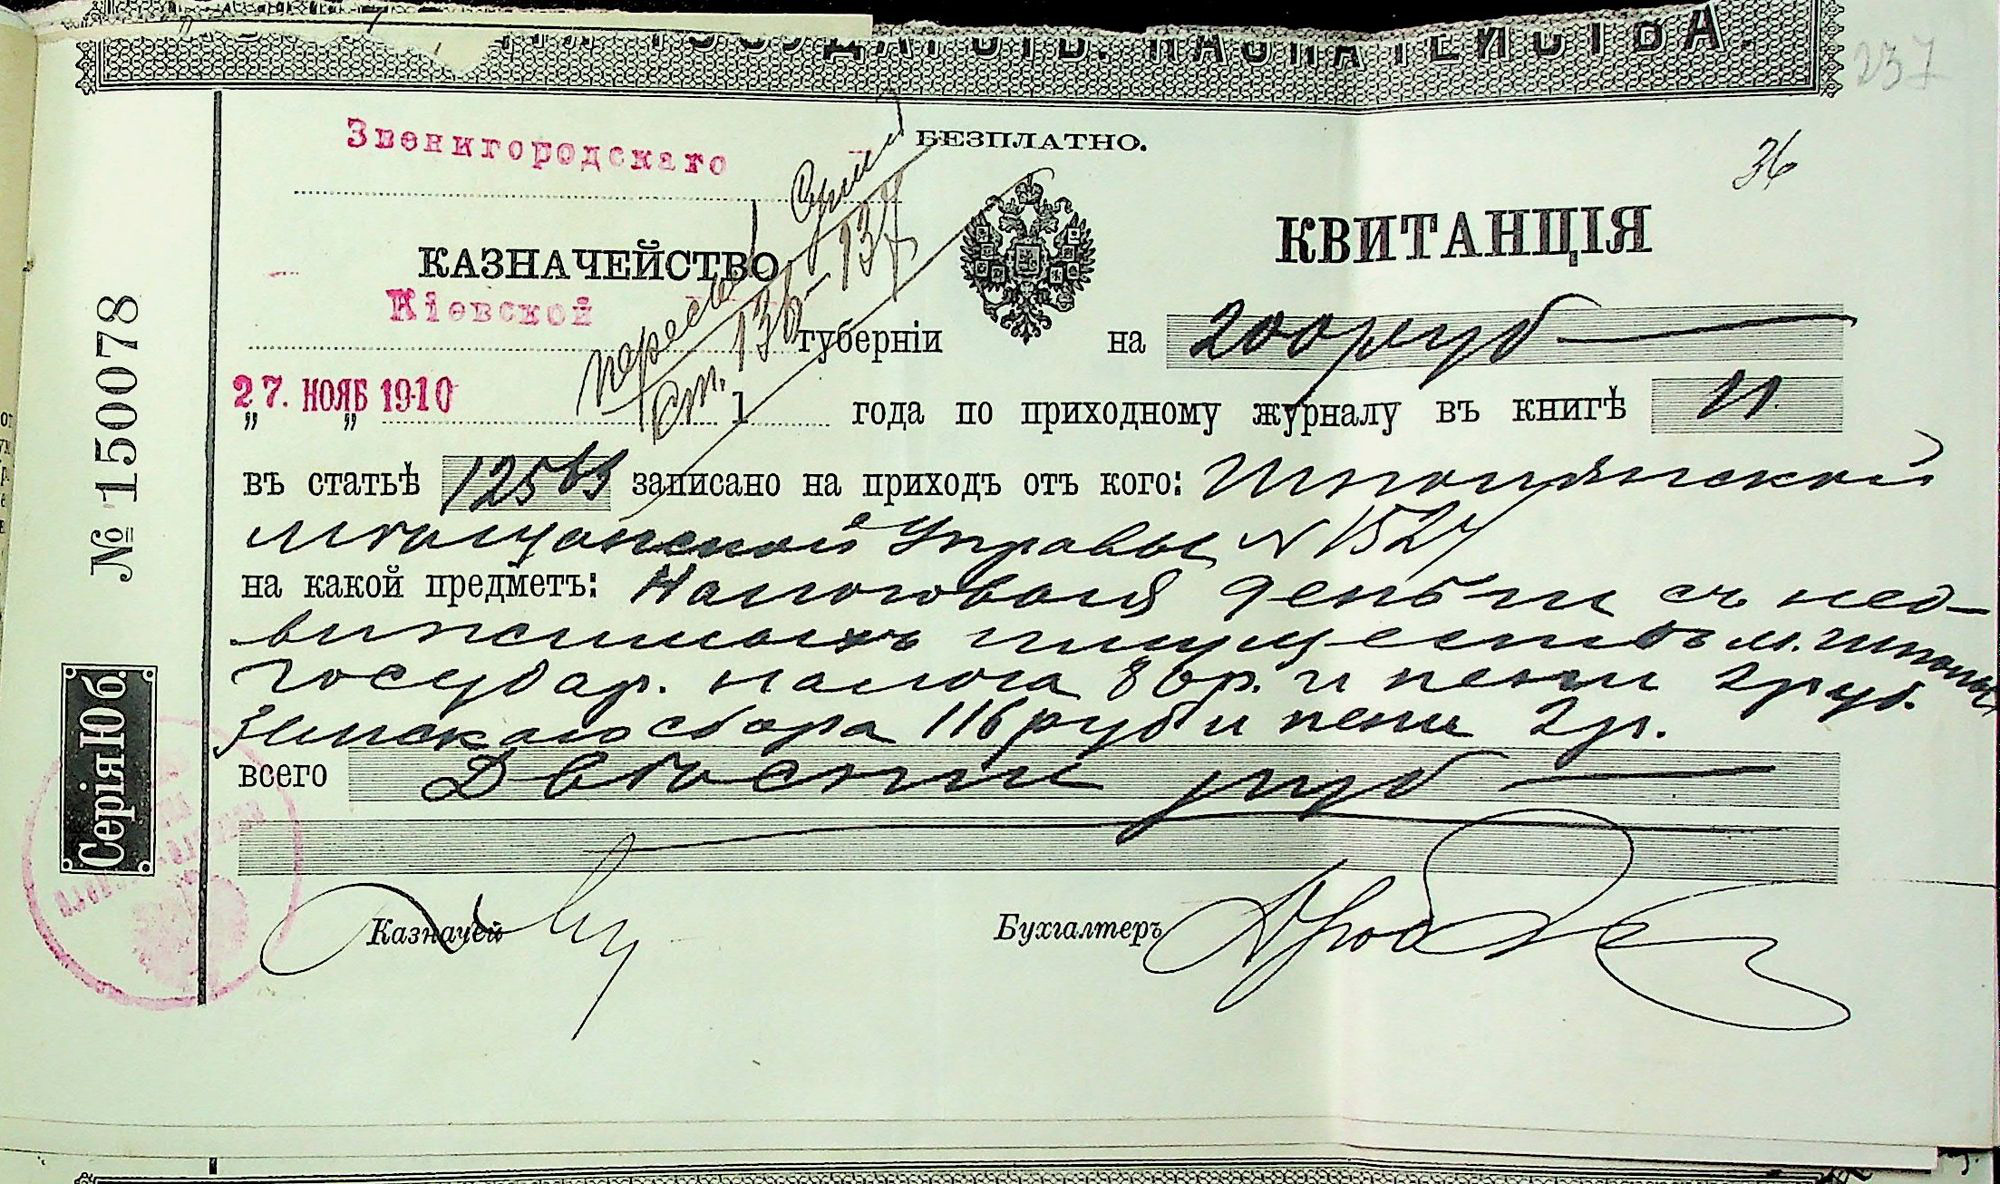 ГОСУДАРСТВ. КАЗНАЧЕЙСТВА.
237
Звенигородскаго
БЕЗПЛАТНО.
36
КАЗНАЧЕЙСТВО
КВИТАНЦІЯ
Кіевской
губерніи
на 200 руб
27. НОЯБ 1910
„ „ 1 года по приходному журналу въ книгѣ 11
ст. 136–137
въ статьѣ записано на приходъ отъ кого: Шполянской
мѣщанской Управы N 1527
на какой предметъ: Налоговыя деньги съ нед-
вижимыхъ имуществъ м. Шполы
государ. налога 80 р. и пени 2 руб.
Земскаго сбора 116 руб и пени 2 р.
всего Двѣсти руб
Казначей
Бухгалтеръ
№ 150078
Серія Ю б.